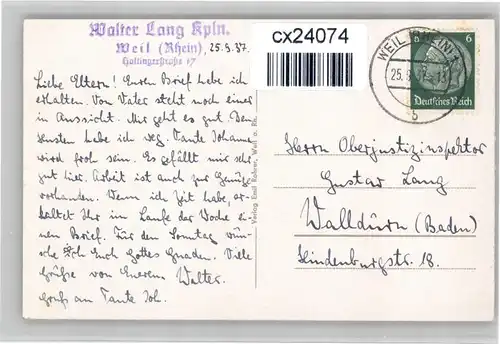 Walter Lang Kpln.
Weil (Rhein), 25.9.37.
Haltingerstraße 17
Liebe Eltern! Euren Brief habe ich
erhalten. Von Vater steht noch einer
in Aussicht. Mir geht es gut. Den
habe ich weg. Tante Johanna
wird froh sein. Es gefällt mir sehr
gut hier. Arbeit ist auch zur Genüge
vorhanden. Wenn ich Zeit habe, er-
haltet Ihr im Laufe der Woche ei-
nen Brief. Für den Sonntag wün-
sche ich Euch Gottes Gnaden. Viele
Grüße von Eurem Walter.
Gruß an Tante Joh.
Verlag Emil Rohrer, Weil a. Rh.
cx24074
WEIL (RHEIN) 1
25.9.
b
6
Deutsches Reich
Herrn Oberjustizinspektor
Gustav Lang
Walldürn (Baden)
Hindenburgstr. 18.